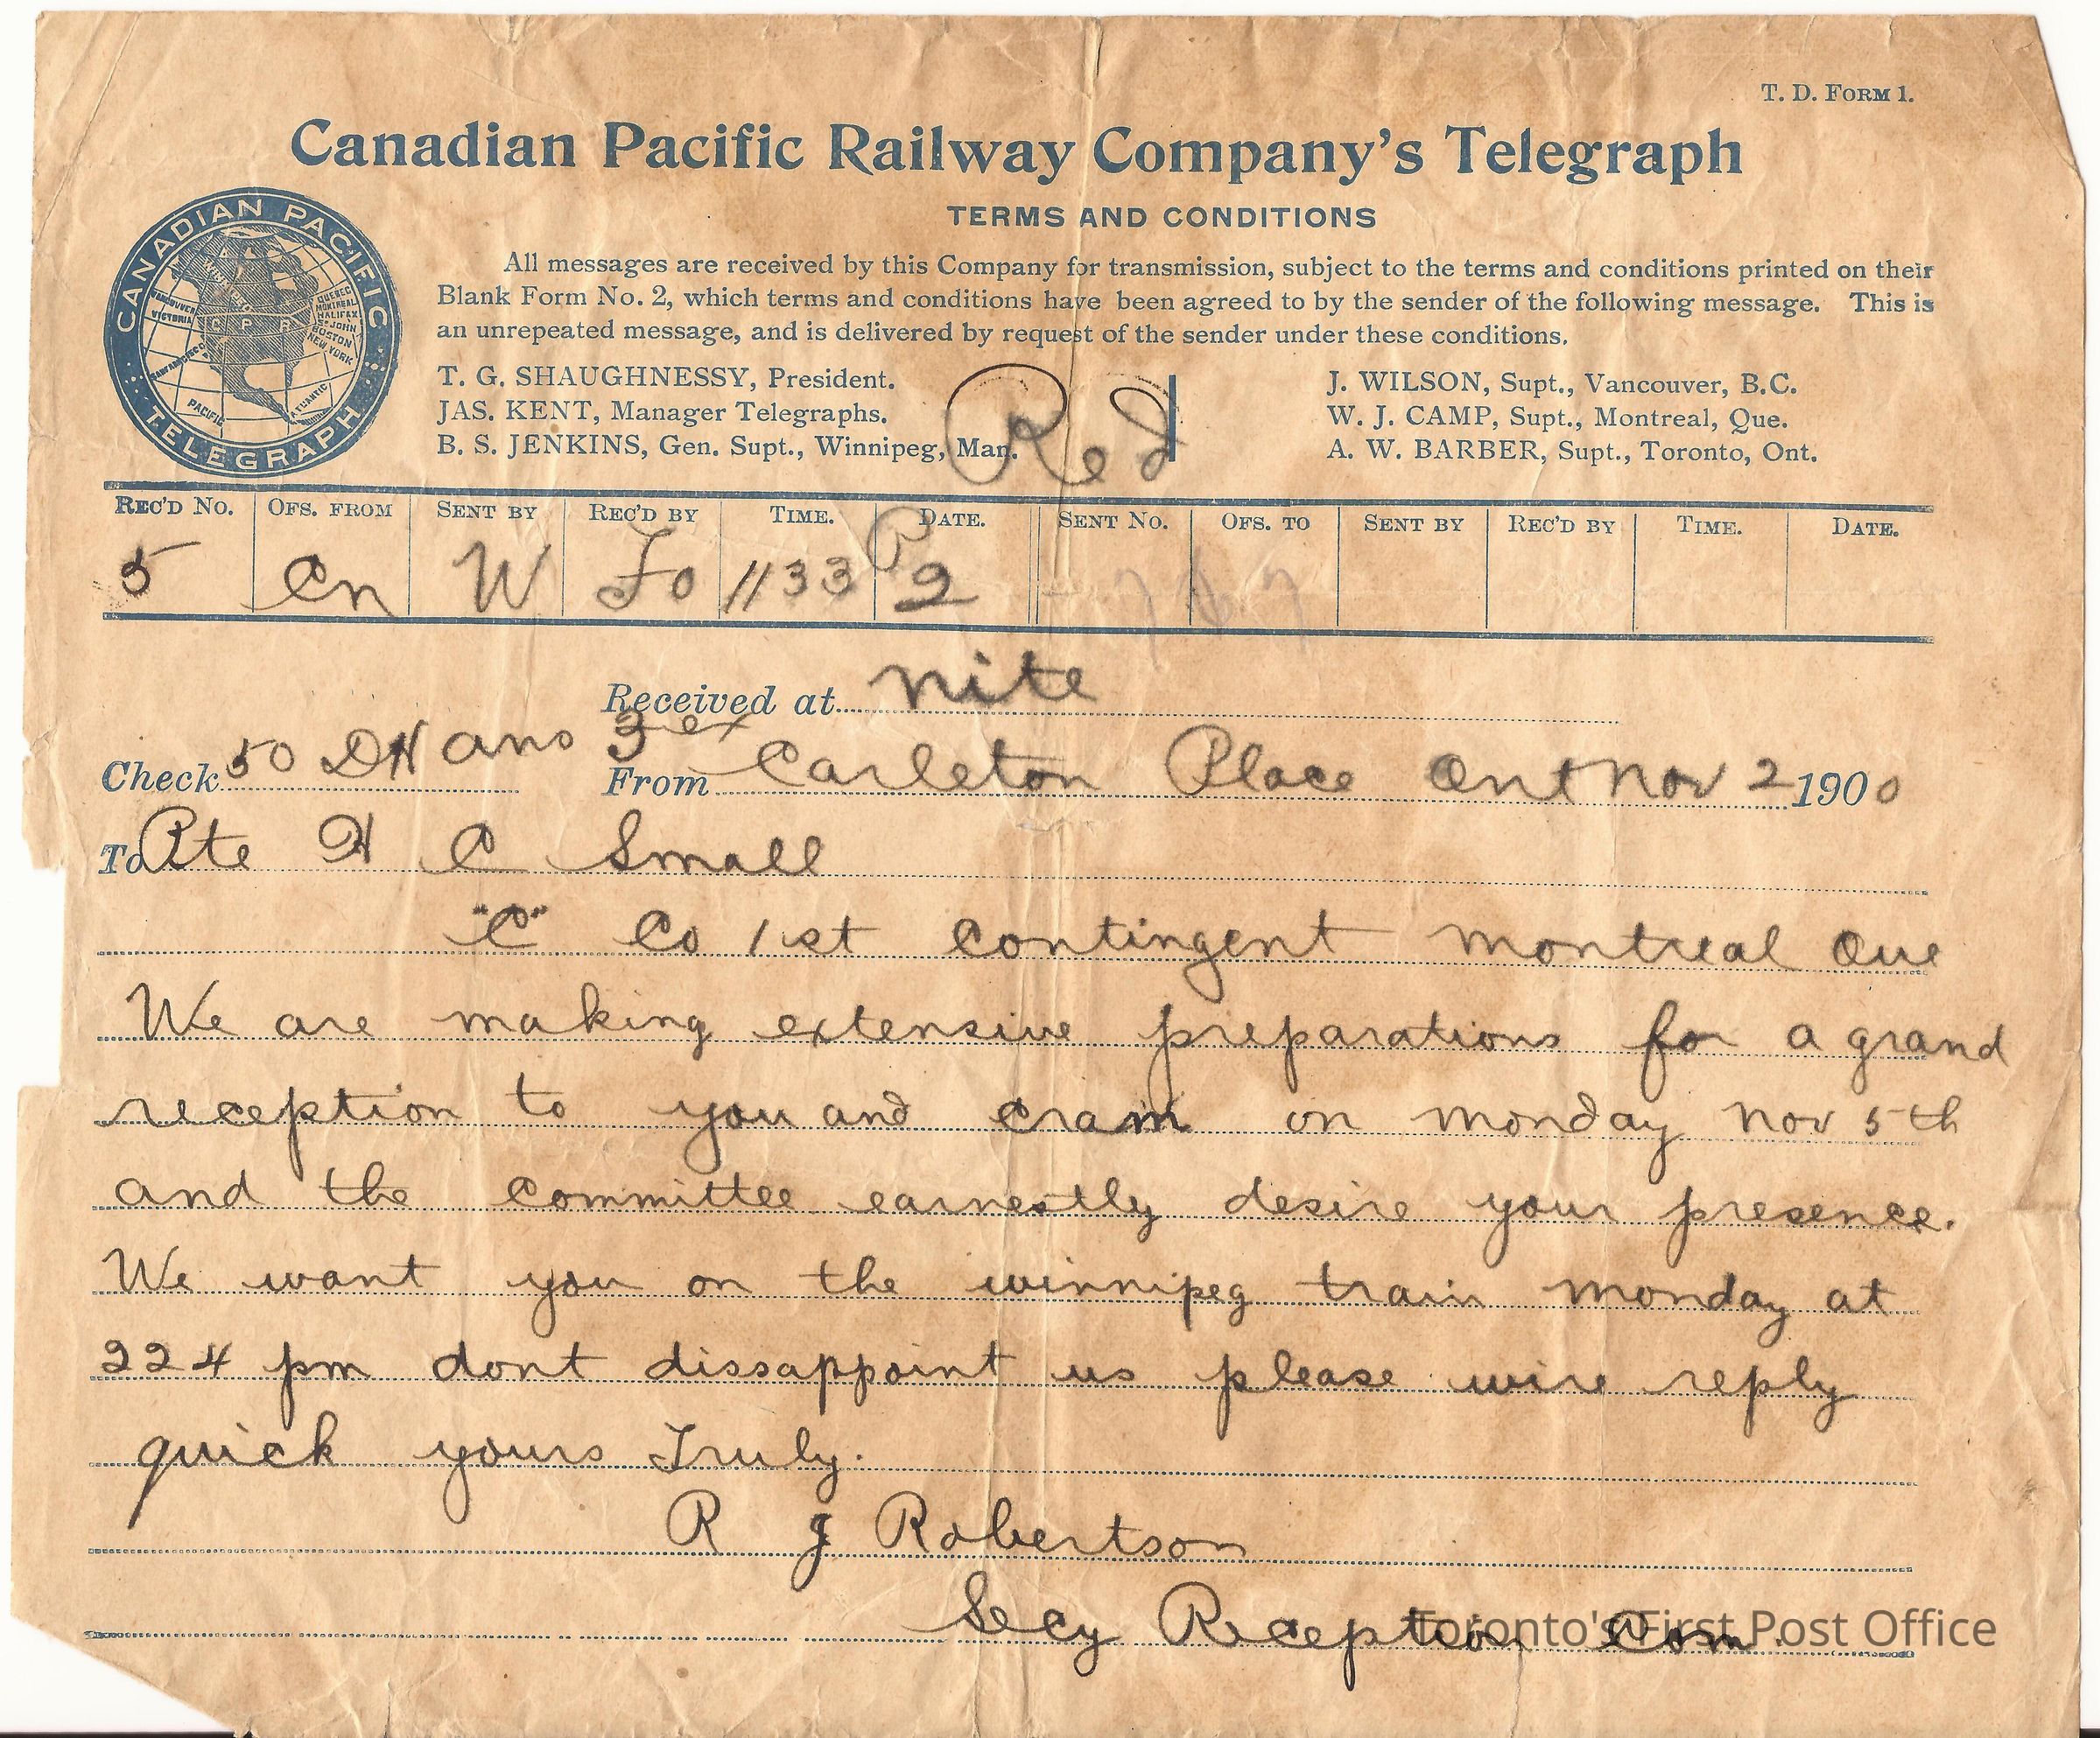 T. D. FORM 1.
Canadian Pacific Railway Company's Telegraph
TERMS AND CONDITIONS
All messages are received by this Company for transmission, subject to the terms and conditions printed on their
Blank Form No. 2, which terms and conditions have been agreed to by the sender of the following message. This is
an unrepeated message, and is delivered by request of the sender under these conditions.
CANADIAN PACIFIC
TELEGRAPH
VANCOUVER
VICTORIA
C P R
QUEBEC
MONTREAL
HALIFAX
ST JOHN
BOSTON
NEW YORK
SAN FRANCISCO
PACIFIC
ATLANTIC
T. G. SHAUGHNESSY, President.
JAS. KENT, Manager Telegraphs.
B. S. JENKINS, Gen. Supt., Winnipeg, Man.
Red
J. WILSON, Supt., Vancouver, B.C.
W. J. CAMP, Supt., Montreal, Que.
A. W. BARBER, Supt., Toronto, Ont.
REC'D No. OFS. FROM SENT BY REC'D BY TIME. DATE. SENT No. OFS. TO SENT BY REC'D BY TIME. DATE.
5 Cn W Fo 1133 P 2
Received at nite
Check 50 DH ans 3 ex From Carleton Place Ont Nov 2 1900
To Pte H C Small
"C" Co 1st Contingent Montreal Que
We are making extensive preparations for a grand
reception to you and Cram on Monday Nov 5th
and the Committee earnestly desire your presence.
We want you on the winnipeg train Monday at
224 pm dont dissappoint us please wire reply
quick yours Truly.
R J Robertson
Secy Reception Com
Toronto's First Post Office